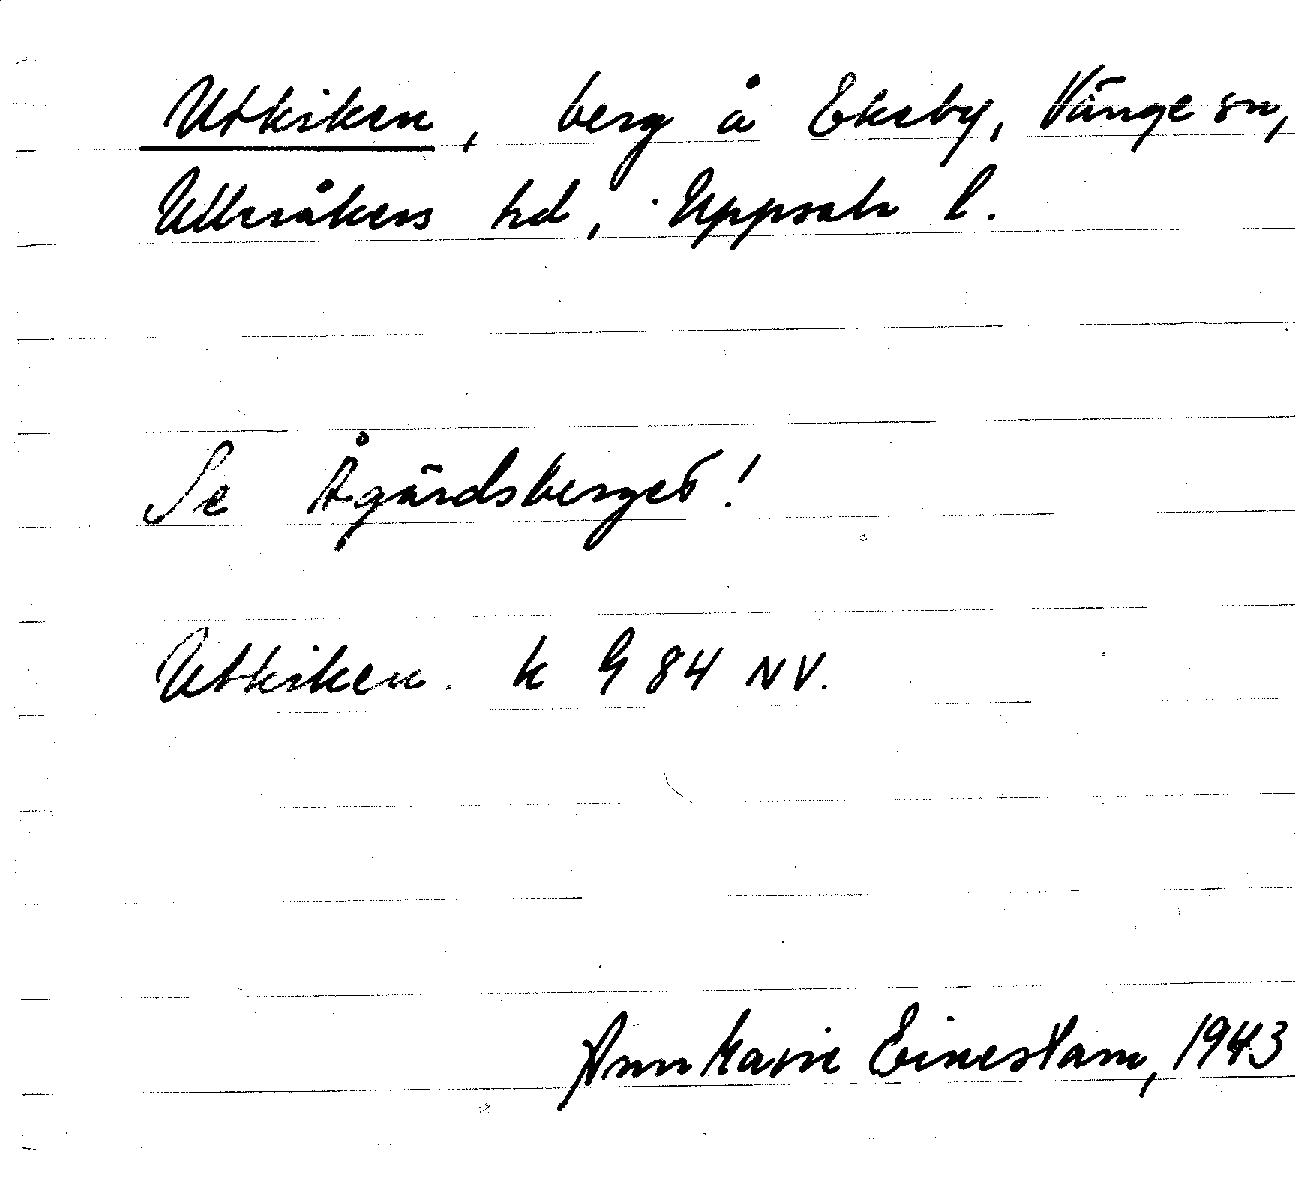 Utkiken, berg å Ekeby, Vänge sn,
Ulleråkers hd, Uppsala l.
Se Ågärdsberget!
Utkiken. k G 84 NV.
Ann Marie Einestam, 1943